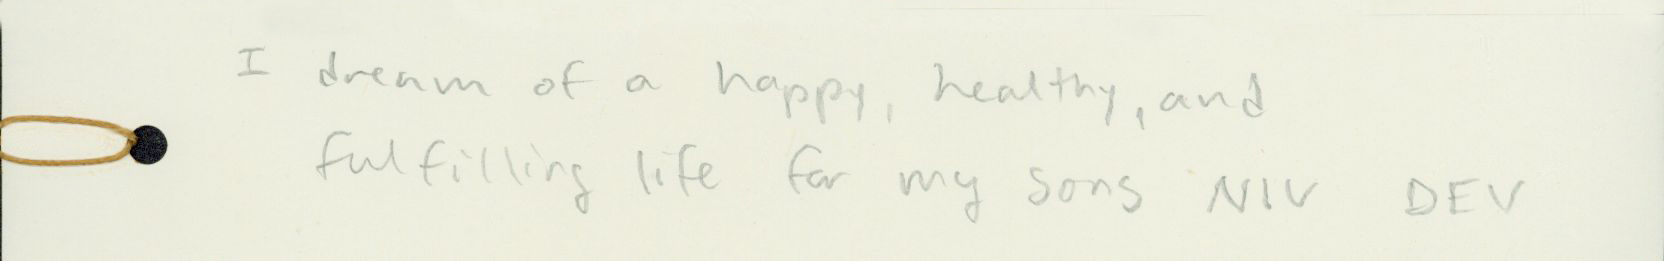 I dream of a happy, healthy, and
fulfilling life for my sons NIV DEV